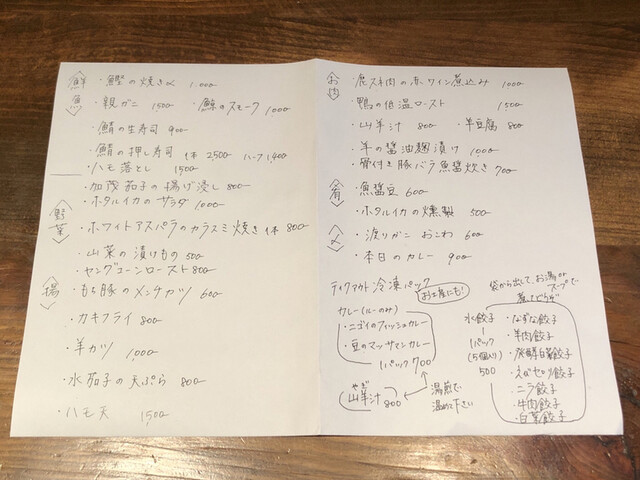 鮮魚
・鰹の焼き〆 1,000
・親ガニ 1500 ・鯨のスモーク 1000
・鯖の生寿司 900
・鯖の押し寿司 1本 2,500 ハーフ1,400
・ハモ落とし 1500
・加茂茄子の揚げ浸し 800
・ホタルイカのサラダ 1000
野菜
・ホワイトアスパラのカラスミ焼き 1本 800
・山菜の漬けもの 500
・ヤングコーンロースト 800
揚
・もち豚のメンチカツ 600
・カキフライ 800
・羊カツ 1,000
・水茄子の天ぷら 800
・ハモ天 1,500
お肉
・鹿スネ肉の赤ワイン煮込み 1000
・鴨の低温ロースト 1500
・山羊汁 800 ・羊豆腐 800
・羊の醤油麹漬け 1000
・骨付き豚バラ魚醤炊き 700
肴
・魚醤豆 600
・ホタルイカの燻製 500
〆
・渡りガニおこわ 600
・本日のカレー 900
テイクアウト 冷凍パック
お土産にも!
カレー(ルーのみ)
・ニゴイのフィッシュカレー
・豆のマッサマンカレー
1パック 700
やぎ
山羊汁 800
湯煎で温めて下さい
袋から出して、お湯orスープで
水餃子
1パック
(5個入り)
500
・なずな餃子
・羊肉餃子
・発酵白菜餃子
・えびセロリ餃子
・ニラ餃子
・牛肉餃子
・白菜餃子